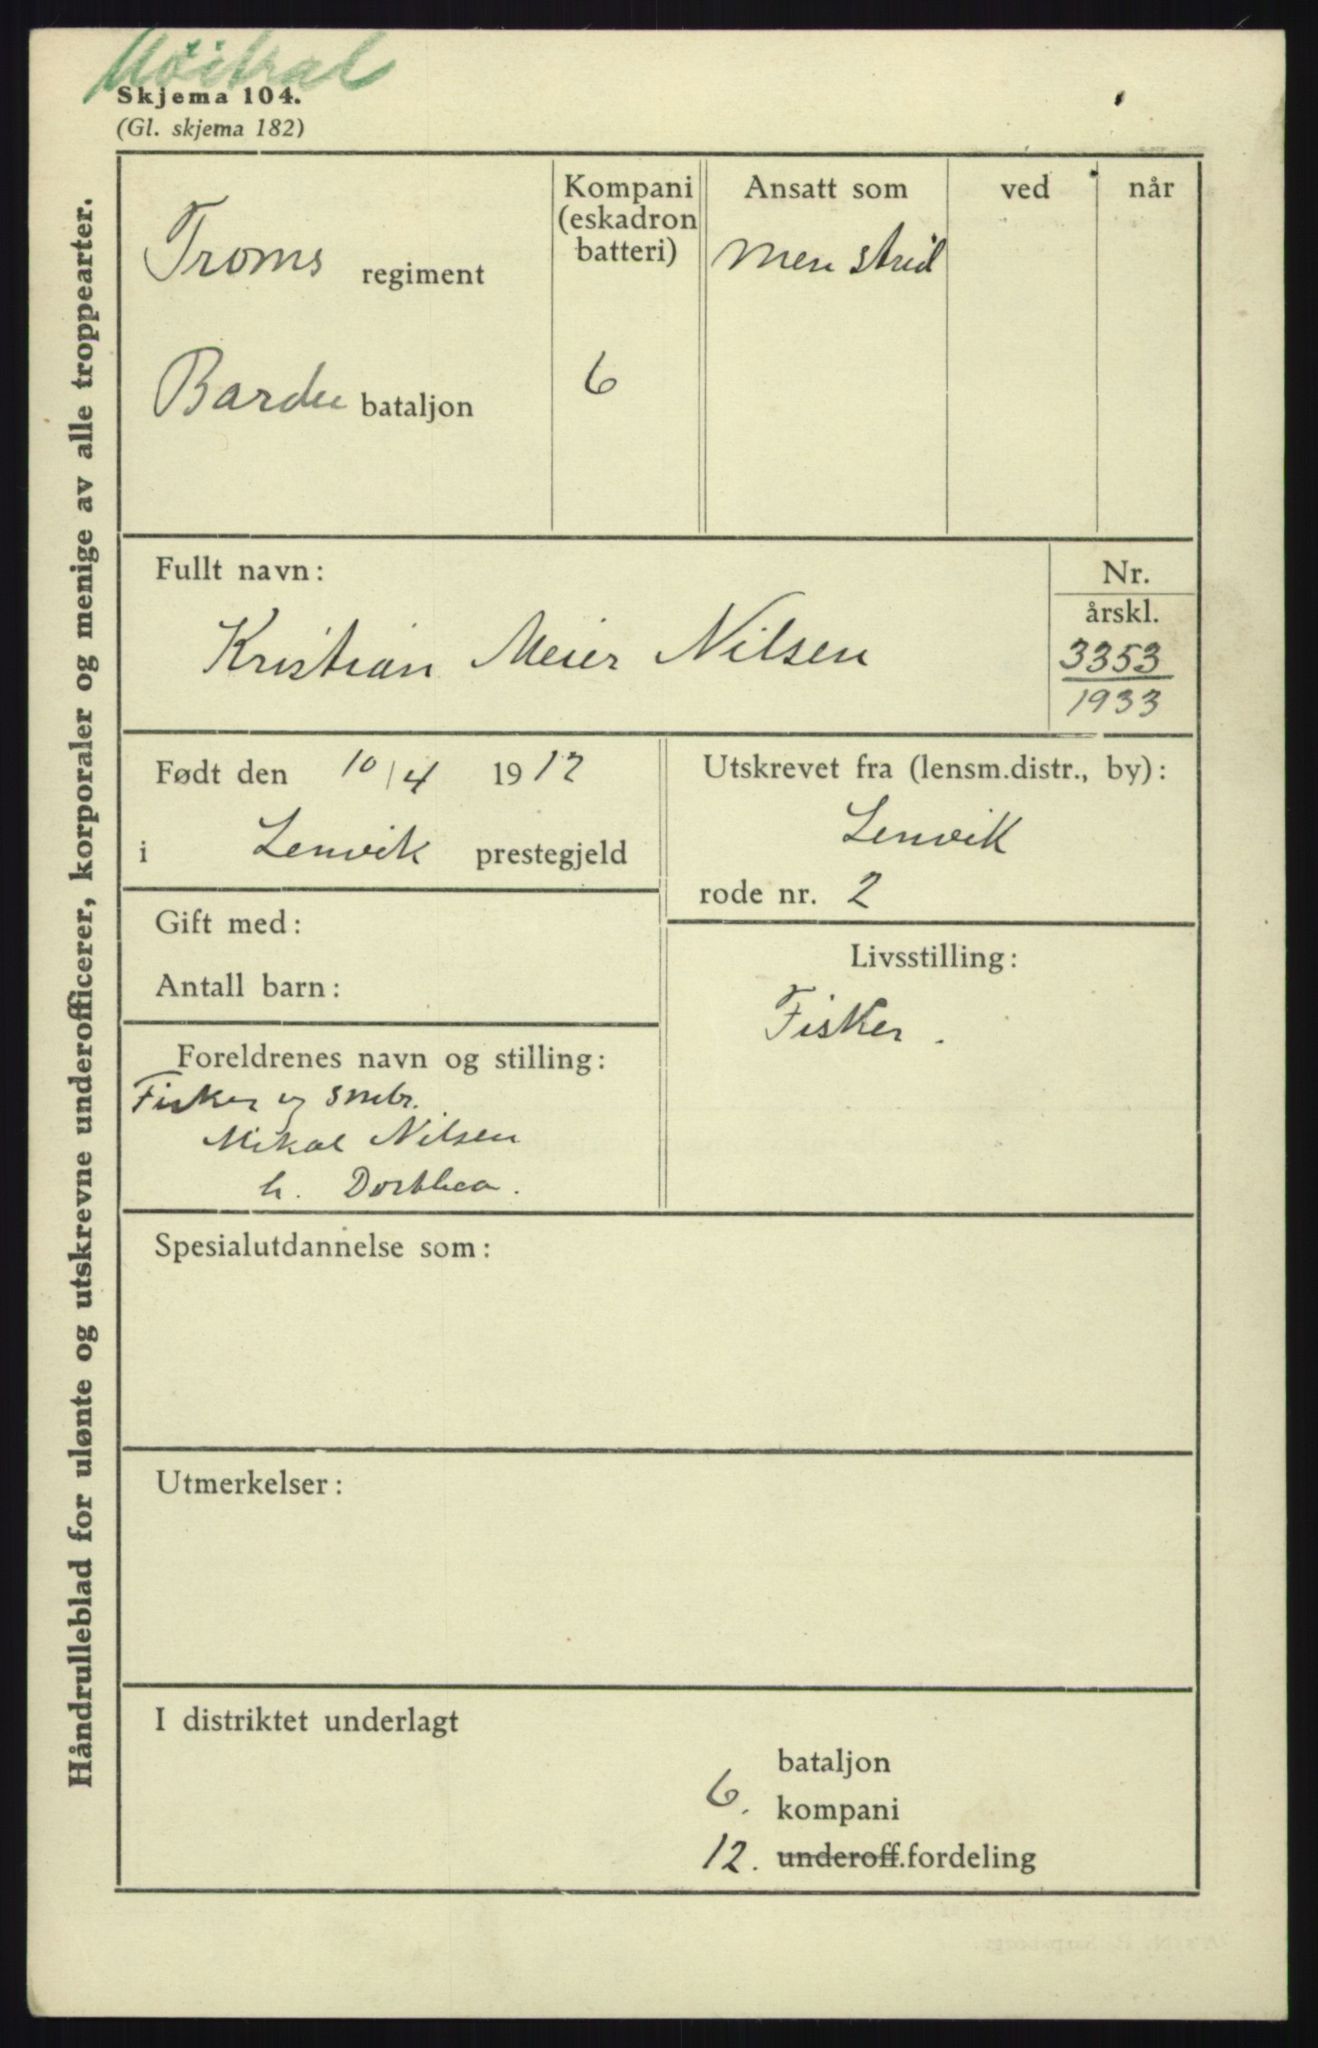 Nöitral
Skjema 104.
(Gl. skjema 182)
Håndrulleblad for ulønte og utskrevne underofficerer, korporaler og menige av alle troppearter.
Troms regiment
Bardu bataljon
Kompani
(eskadron
batteri)
6
Ansatt som
Men strid
ved
når
Fullt navn:
Kristian Meier Nilsen
Nr.
årskl.
3353
1933
Født den 10/4 1912
i Lenvik prestegjeld
Utskrevet fra (lensm.distr., by):
Lenvik
rode nr. 2
Gift med:
Antall barn:
Livsstilling:
Fisker.
Foreldrenes navn og stilling:
Fisker og smbr.
Mikal Nilsen
h. Dorthea.
Spesialutdannelse som:
Utmerkelser:
I distriktet underlagt
bataljon
6. kompani
12. underoff.fordeling